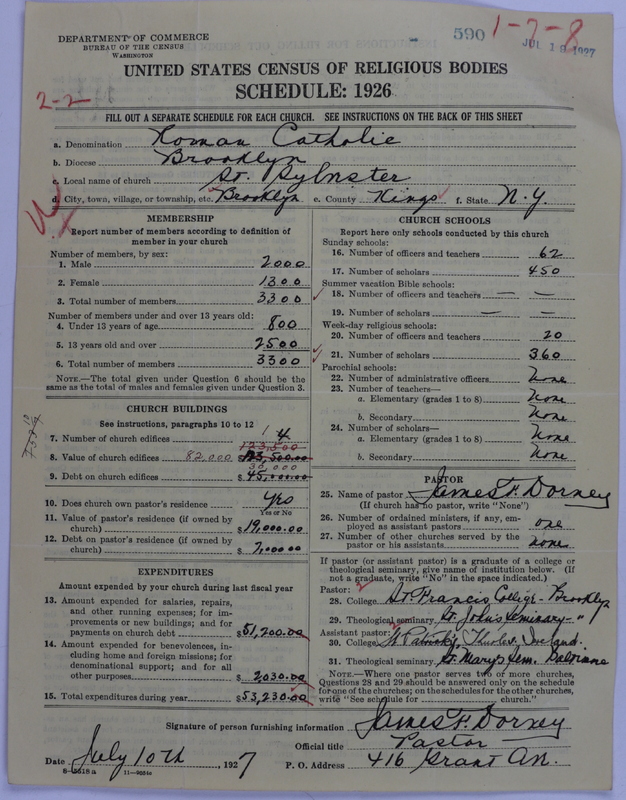 DEPARTMENT OF COMMERCE
BUREAU OF THE CENSUS
WASHINGTON
590
1-7-8
JUL 19 1927
UNITED STATES CENSUS OF RELIGIOUS BODIES
SCHEDULE: 1926
2-2
FILL OUT A SEPARATE SCHEDULE FOR EACH CHURCH. SEE INSTRUCTIONS ON THE BACK OF THIS SHEET
a. Denomination Roman Catholic
b. Diocese Brooklyn
c. Local name of church St. Sylvester
d. City, town, village, or township, etc. Brooklyn e. County Kings f. State N.Y.
MEMBERSHIP
Report number of members according to definition of
member in your church
Number of members, by sex:
1. Male 2000
2. Female 1300
3. Total number of members 3300
Number of members under and over 13 years old:
4. Under 13 years of age 800
5. 13 years old and over 2500
6. Total number of members 3300
NOTE.—The total given under Question 6 should be the
same as the total of males and females given under Question 3.
CHURCH BUILDINGS
See instructions, paragraphs 10 to 12
7. Number of church edifices 1 4
123,500
8. Value of church edifices 82,000 $ 123,500.00
30,000
9. Debt on church edifices $ 45,000.00
10. Does church own pastor's residence Yes
Yes or No
11. Value of pastor's residence (if owned by
church) $ 19,000.00
12. Debt on pastor's residence (if owned by
church) $ 7,000.00
EXPENDITURES
Amount expended by your church during last fiscal year
13. Amount expended for salaries, repairs,
and other running expenses; for im-
provements or new buildings; and for
payments on church debt $ 51,200.00
14. Amount expended for benevolences, in-
cluding home and foreign missions; for
denominational support; and for all
other purposes $ 2030.00
15. Total expenditures during year $ 53,230.00
CHURCH SCHOOLS
Report here only schools conducted by this church
Sunday schools:
16. Number of officers and teachers 62
17. Number of scholars 450
Summer vacation Bible schools:
18. Number of officers and teachers — —
19. Number of scholars — —
Week-day religious schools:
20. Number of officers and teachers 20
21. Number of scholars 360
Parochial schools:
22. Number of administrative officers None
23. Number of teachers—
a. Elementary (grades 1 to 8) None
b. Secondary None
24. Number of scholars—
a. Elementary (grades 1 to 8) None
b. Secondary None
PASTOR
25. Name of pastor James F. Dorney
(If church has no pastor, write "None")
26. Number of ordained ministers, if any, em-
ployed as assistant pastors one
27. Number of other churches served by the
pastor or his assistants none
If pastor (or assistant pastor) is a graduate of a college or
theological seminary, give name of institution below. (If
not a graduate, write "No" in the space indicated.)
Pastor:
28. College St. Francis College - Brooklyn
29. Theological seminary St. John's Seminary - "
Assistant pastor:
30. College St. Patrick's, Thurles, Ireland.
31. Theological seminary St. Mary's Sem. Baltimore
NOTE.—Where one pastor serves two or more churches,
Questions 28 and 29 should be answered only on the schedule
for one of the churches; on the schedules for the other churches,
write "See schedule for church."
Signature of person furnishing information James F. Dorney
Official title Pastor
Date July 10th, 1927 P. O. Address 416 Grant Av.
8-5518 a 11-9054